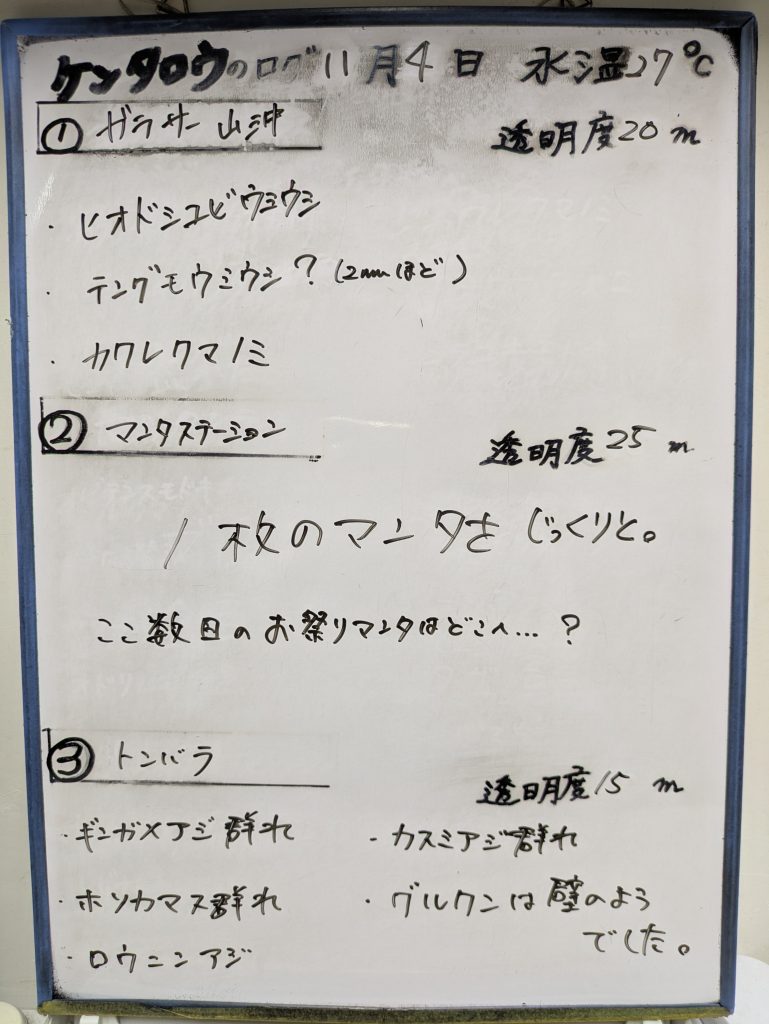 ケンタロウのログ 11月4日 水温27℃
① ガラサー山沖 透明度20m
・ヒオドシユビウミウシ
・テングモウミウシ?(2mmほど)
・カクレクマノミ
② マンタステーション 透明度25m
1枚のマンタをじっくりと。
ここ数日のお祭りマンタはどこへ…?
③ トンバラ 透明度15m
・ギンガメアジ群れ ・カスミアジ群れ
・ホソカマス群れ ・グルクンは壁のよう
でした。
・ロウニンアジ